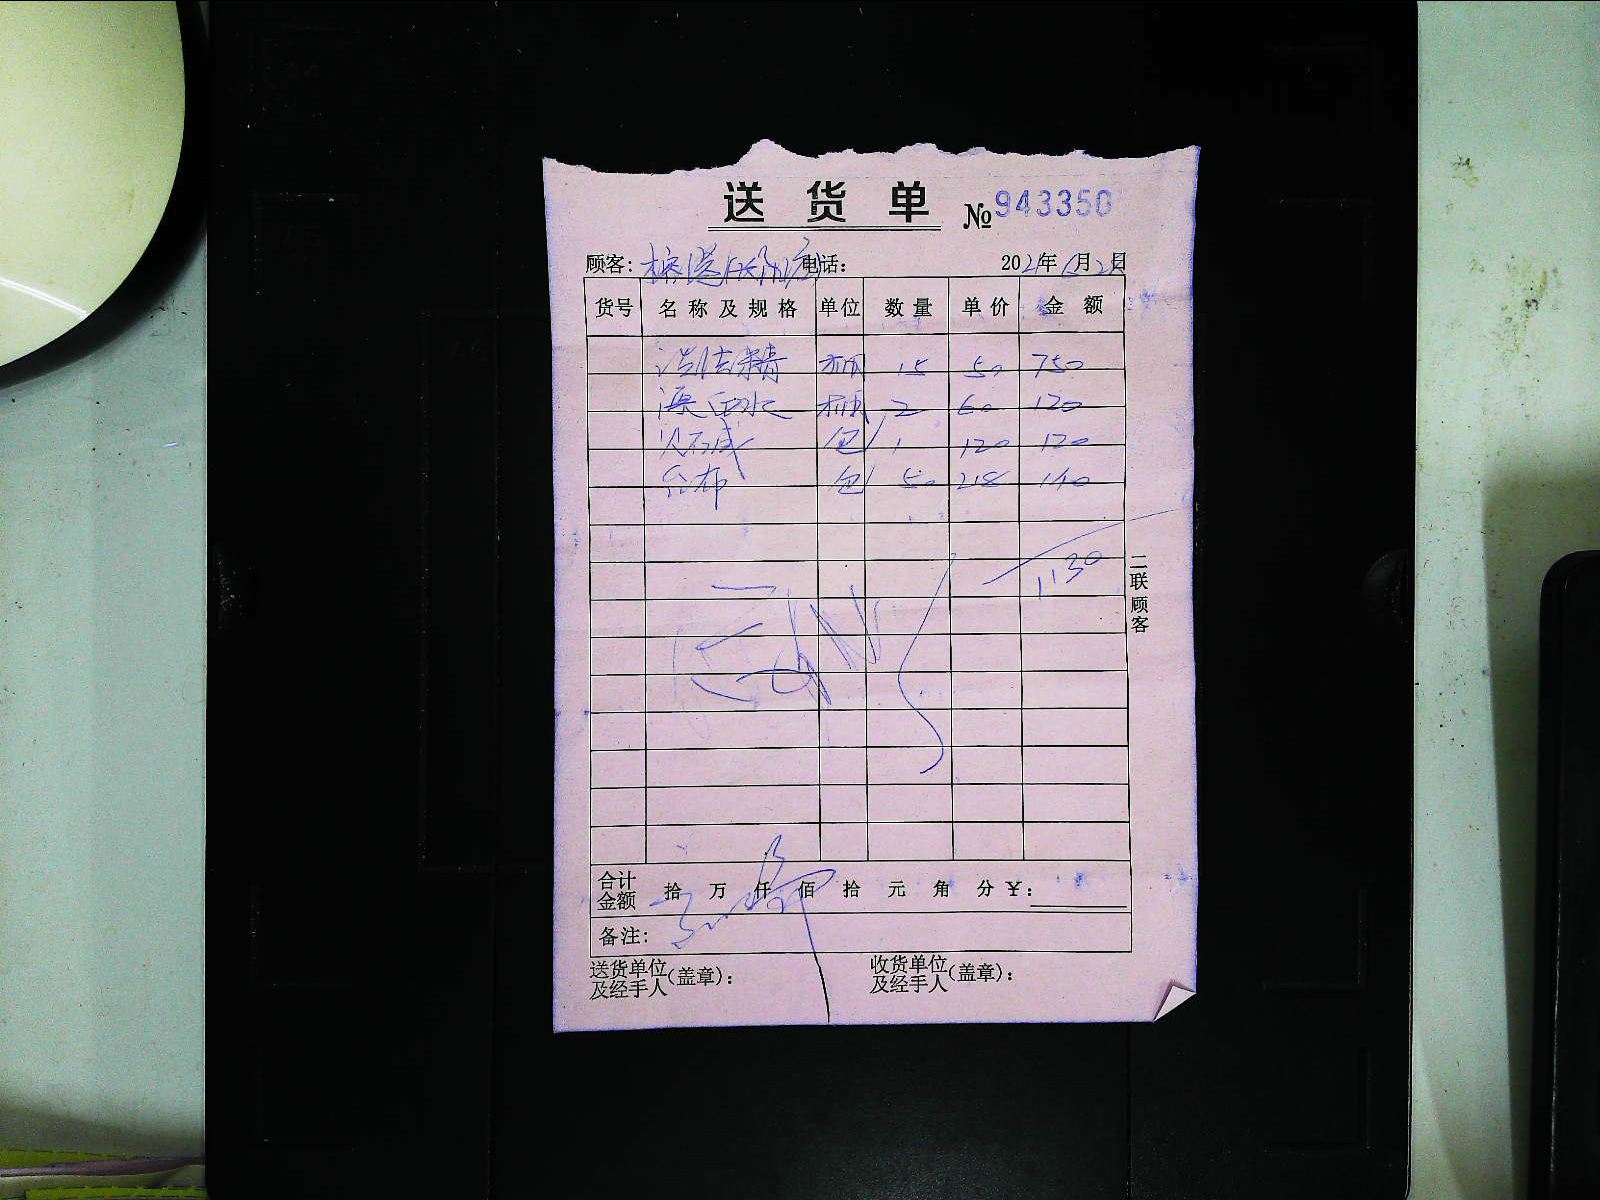 送货单 №943350
顾客: 电话: 202 年 月 日
货号 名称及规格 单位 数量 单价 金额
洗洁精 桶 15 50 750
漂白水 桶 2 60 120
火石碱 包 1 120 120
台布 包 50 2.8 140
1130
二联顾客
合计金额 拾 万 仟 佰 拾 元 角 分 ¥:
备注:
送货单位及经手人(盖章): 收货单位及经手人(盖章):